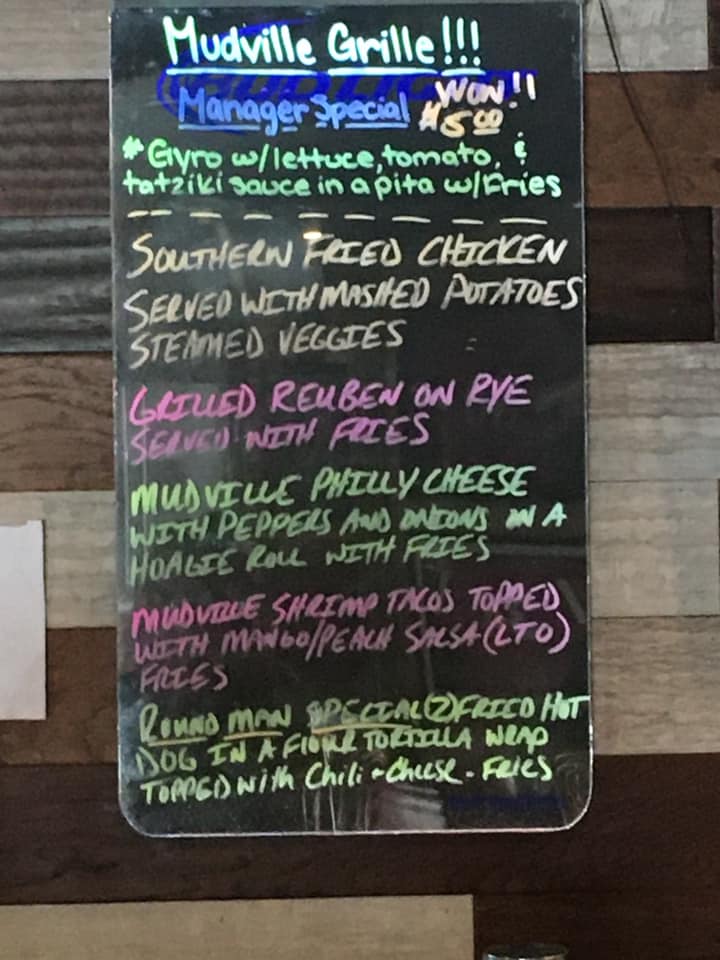 Mudville Grille!!!
BUD LIGHT
Manager Special $5.00 WOW!!
* Gyro w/lettuce, tomato, &
tatziki sauce in a pita w/Fries
SOUTHERN FRIED CHICKEN
SERVED WITH MASHED POTATOES
STEAMED VEGGIES
GRILLED REUBEN ON RYE
SERVED WITH FRIES
MUDVILLE PHILLY CHEESE
WITH PEPPERS AND ONIONS IN A
HOAGIE ROLL WITH FRIES
MUDVILLE SHRIMP TACOS TOPPED
WITH MANGO/PEACH SALSA (LTO)
FRIES
ROUND MAN SPECIAL (2) FRIED HOT
DOG IN A FLOUR TORTILLA WRAP
TOPPED WITH Chili + Cheese - FRIES